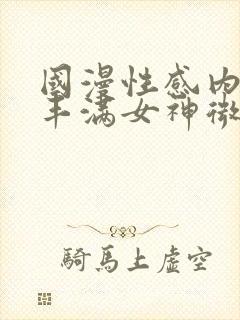 國漫性感內
丰滿女神微
騎馬上虛空